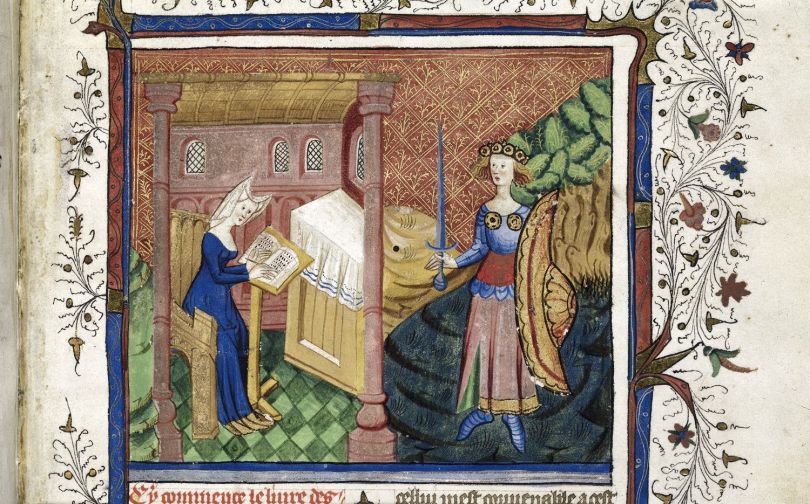 Cy commence le liure des
cellui mest conuenable a cest